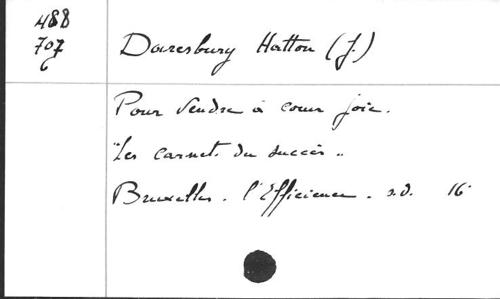 488
707
6
Daresbury Hatton (J.)
Pour Vendre à cœur joie.
"Les carnets du succès"
Bruxelles. l'Efficience. s.d. 16°